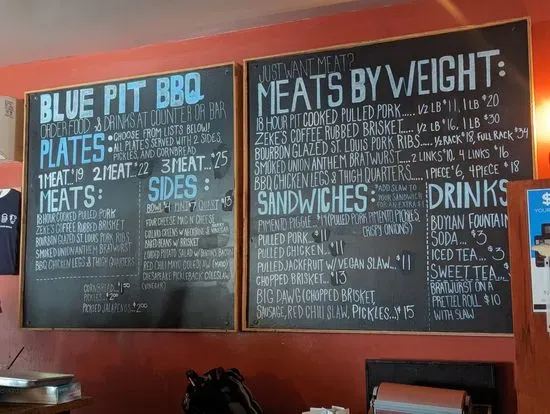 BLUE PIT BBQ
ORDER FOOD & DRINKS AT COUNTER OR BAR
PLATES:
CHOOSE FROM LISTS BELOW!
ALL PLATES SERVED WITH 2 SIDES,
PICKLES, AND CORNBREAD
1 MEAT.$19 2 MEAT.$22 3 MEAT.$25
MEATS:
18 HOUR COOKED PULLED PORK
ZEKE'S COFFEE RUBBED BRISKET
BOURBON GLAZED ST. LOUIS PORK RIBS
SMOKED UNION ANTHEM BRATWURST
BBQ CHICKEN LEGS & THIGH QUARTERS
SIDES:
BOWL PINT QUART
FOUR CHEESE MAC N' CHEESE
COLLARD GREENS W/
BAKED BEANS W/ BRISKET
LOADED POTATO SALAD W/ BACON
RED CHILI MAYO COLESLAW (MAYO)
CHESAPEAKE PICKLEBACK COLESLAW
(VINEGAR)
CORNBREAD
PICKLES
PICKLED JALAPENOS
JUST WANT MEAT?
MEATS BY WEIGHT:
18 HOUR PIT COOKED PULLED PORK.... 1/2 LB $11, 1 LB $20
ZEKE'S COFFEE RUBBED BRISKET.... 1/2 LB $16, 1 LB $30
BOURBON GLAZED ST. LOUIS PORK RIBS... 1/2 RACK $18, FULL RACK $34
SMOKED UNION ANTHEM BRATWURST... 2 LINKS $10, 4 LINKS $16
BBQ CHICKEN LEGS & THIGH QUARTERS.... 1 PIECE $6, 4 PIECE $18
SANDWICHES:
ADD SLAW TO
YOUR SANDWICH
PIMENTO PIGGIE.. $14 (PULLED PORK, PIMENTO, PICKLES,
CRISPY ONIONS)
PULLED PORK... $11
PULLED CHICKEN... $11
PULLED JACKFRUIT W/ VEGAN SLAW... $11
CHOPPED BRISKET... $13
BIG DAWG (CHOPPED BRISKET,
SAUSAGE, RED CHILI SLAW, PICKLES...) $15
DRINKS
BOYLAN FOUNTAIN
SODA... $3
ICED TEA... $3
SWEET TEA...
BRATWURST ON A
PRETZEL ROLL $10
WITH SLAW